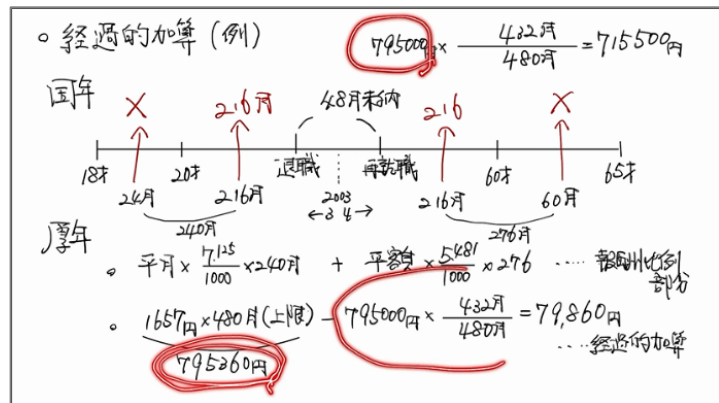 ○ 経過的加算 (例)
795000円 × 432月/480月 = 715500円
国年
× 216月 48月未納 216 ×
18才 20才 退職 再就職 60才 65才
24月 216月 2003 216月 60月
240月 ←3 4→ 276月
厚年
。 平月 × 7.125/1000 × 240月 + 平額 × 5.481/1000 × 276 …… 報酬比例部分
。 1657円 × 480月(上限) - 795000円 × 432月/480月 = 79,860円
795360円 …… 経過的加算